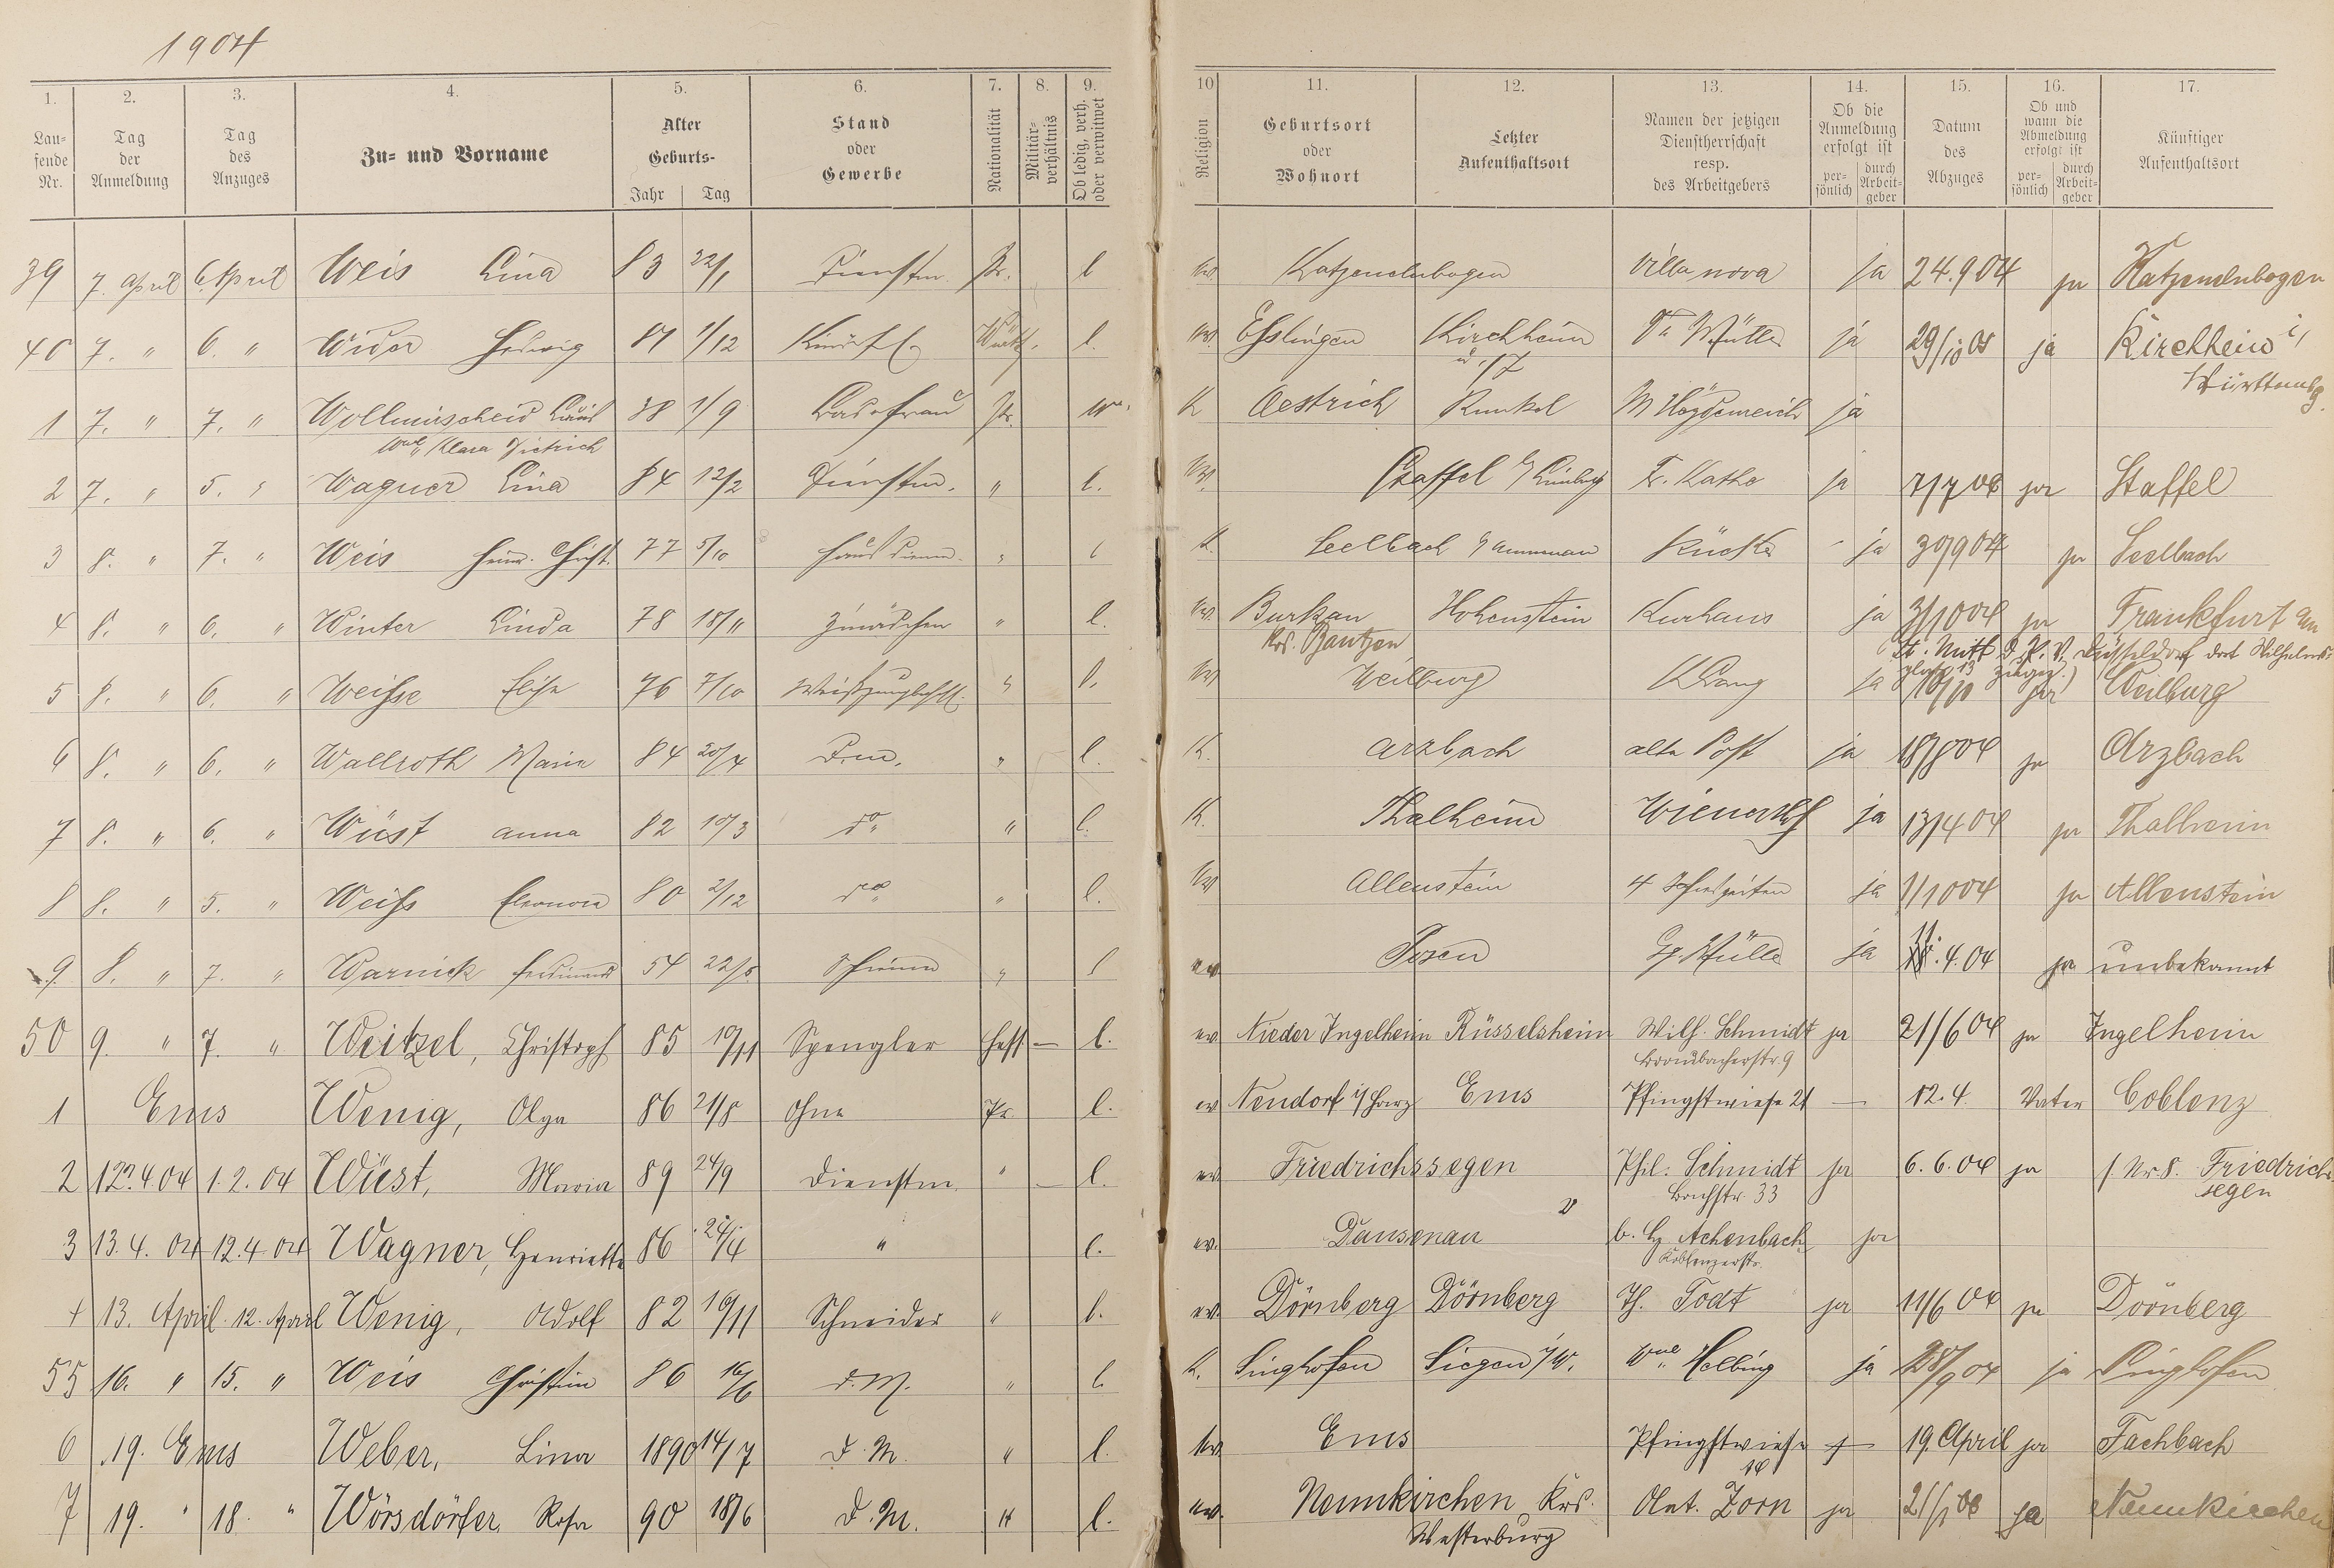 1904
1. 2. 3. 4. 5. 6. 7. 8. 9. 10 11. 12. 13. 14. 15. 16. 17.
Laufende Nr. Tag der Anmeldung Tag des Anzuges Zu- und Vorname Alter Geburts- Jahr Tag Stand oder Gewerbe Nationalität Militärverhältnis Ob ledig, verh. oder verwitwet Religion Geburtsort oder Wohnort Letzter Aufenthaltsort Namen der jetzigen Dienstherrschaft resp. des Arbeitgebers Ob die Anmeldung erfolgt ist persönlich durch Arbeitgeber Datum des Abzuges Ob und wann die Abmeldung erfolgt ist persönlich durch Arbeitgeber Künftiger Aufenthaltsort
39 7. April 6. April Weis Lina 83 22/1 Dienstm. Pr. l ev. Katzenelnbogen Villa nova ja 24.9.04 ja Katzenelnbogen
40 7. " 6. " Wider Hedwig 81 1/12 Württ. l. ev. Esslingen Kirchheim ja 29/10 ja Kirchheim i/
u/T Württembg.
1 7. " 7. " Wollmerscheid 38 1/9 Badefrau Pr. K Oestrich Runkel ja
Wwe Klara Dietrich
2 7. " 5. " Wagner Lina 84 12/2 Dienstm. " l. ev. Staffel b/ Limburg Fr. Kathe ja 7/7 ja Staffel
3 8. " 7. " Weis Heinr. Christ. 77 5/10 Hausdiener " l K. Seelbach Rücker ja 30/9 04 ja Seelbach
4 8. " 6. " Winter Linda 78 18/11 Zmädchen " l. ev. Burkau Hohenstein Kurhaus ja 3/10 04 ja Frankfurt a/m
Krs. Bautzen lt. Mitt. d. P. V. Düsseldorf dort Wilhelms-
platz 13 zugez.)
5 8. " 6. " Weisse Elise 76 7/10 " l. ev Weilburg ja 10/10 ja Weilburg
6 8. " 6. " Wallroth Maria 84 20/4 " l. K. Arzbach alte Post ja 18/8 04 ja Arzbach
7 8. " 6. " Wüst Anna 82 10/3 do " l. K. Thalheim Wienerhof ja 13/4 04 ja Thalheim
8 8. " 5. " Weiss Eleonora 80 2/12 do " l. ev Allenstein 4 Jahreszeiten ja 1/10 04 ja Allenstein
9. 8. " 7. " Warnick Ferdinand 54 22/5 Schreiner " l ev Posen Gg. Müller ja 4.04 ja unbekannt
50 9. " 7. " Weitzel, Christoph 85 10/11 Spengler Hess — l. ev. Nieder Ingelheim Rüsselsheim Wilh. Schmidt ja 21/6 04 ja Ingelheim
Braubacherstr. 9
1 Ems Wenig, Olga 86 21/8 ohne Pr. l. ev Neudorf i/Harz Ems Pfingstwiese 21 — 12.4. Vater Coblenz
2 12.4 04 1.2.04 Wüst, Maria 89 24/9 Dienstm. " — l. ev. Friedrichssegen Phil. Schmidt ja 6.6.04 ja f Nr 8. Friedrichs-
Bachstr. 33 segen
3 13.4.04 12.4 04 Wagner, Henriette 86 24/4 " l. ev. Dausenau b. Hg. Achenbach ja
Koblenzerstr.
4 13. April 12. April Wenig, Adolf 82 10/11 Schneider " l. ev. Dörnberg Dörnberg Th. Todt ja 11/6 04 ja Dörnberg
55 16. " 15. " Weis Christine 86 16/6 d. M. " l. K. Singhofen Siegen i/W. Wwe Helbing ja 28/9 04 ja Singhofen
6 19. Ems Weber, Lina 1890 14/7 D. M. " l. ev. Ems Pfingstwiese 19. April ja Fachbach
7 19. " 18. " Wörsdörfer, Rosa 90 18/6 D. M. " l. ev. Neunkirchen Krs. Ant. Zorn ja 21/1 ja Neunkirchen
Westerburg